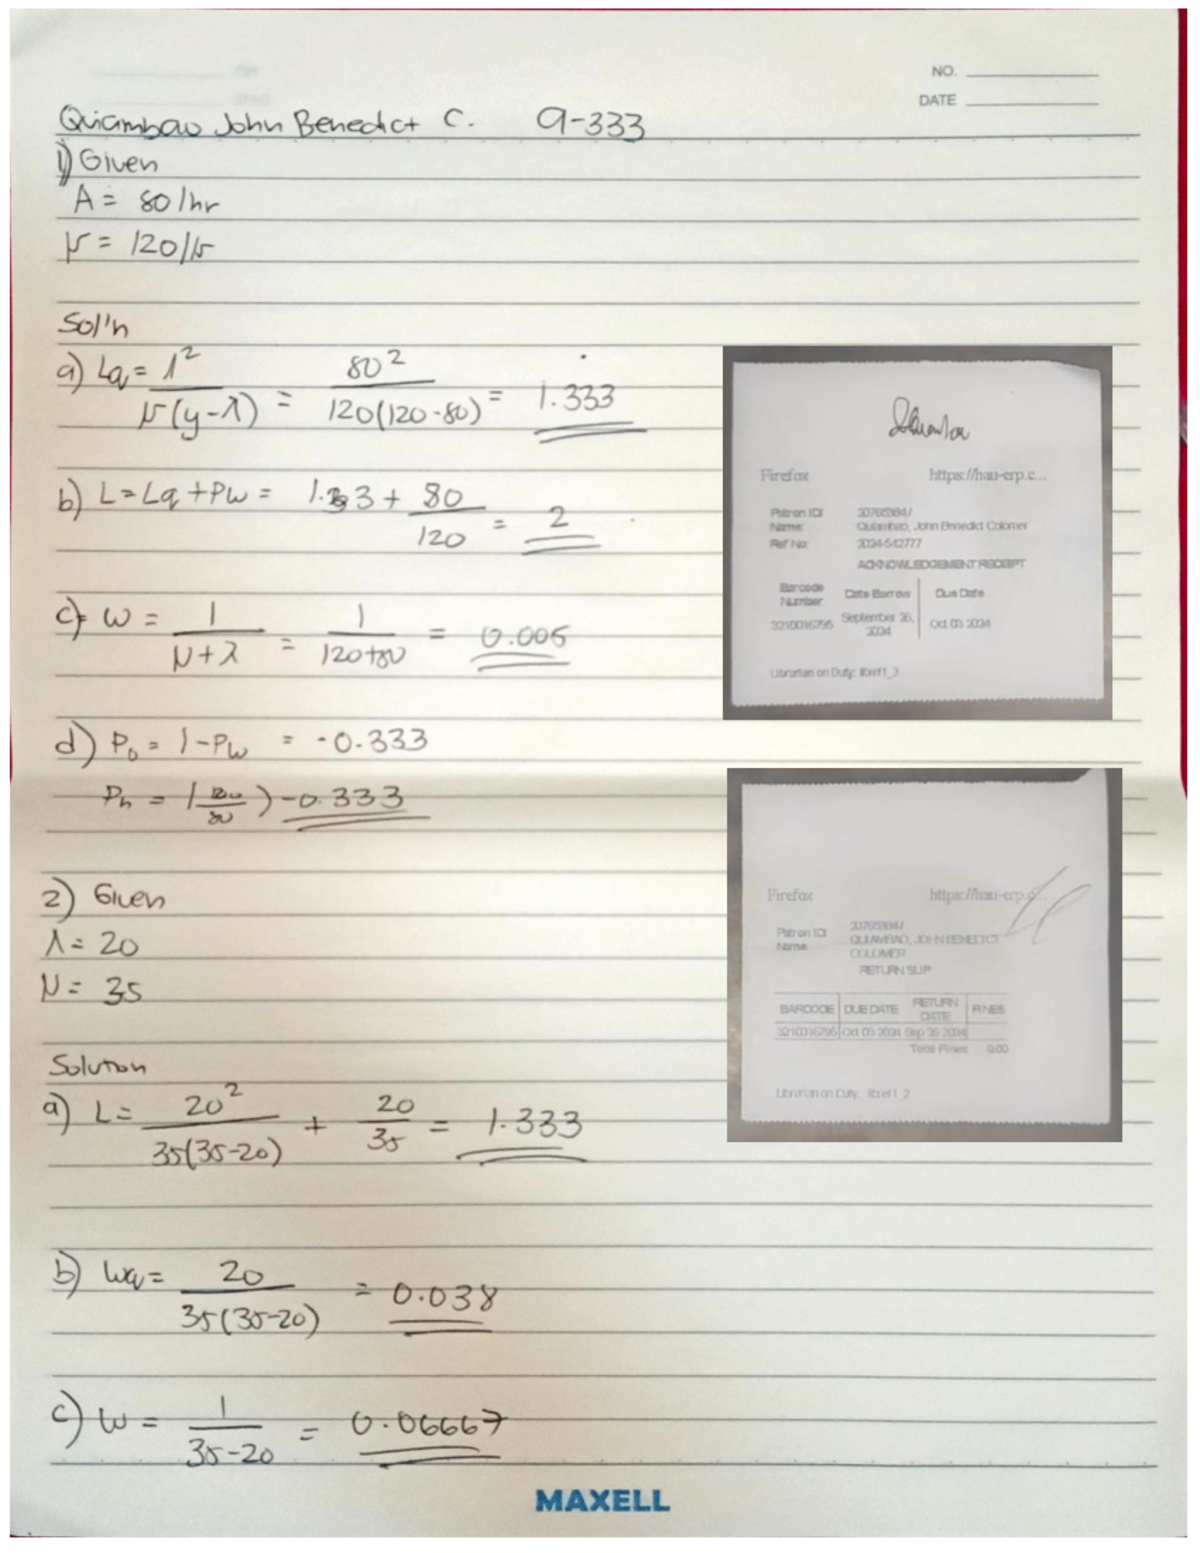 NO.
DATE
Quiambao John Benedict C. 9-333
1) Given
λ = 80/hr
μ = 120/hr
Sol'n
a) Lq = λ² / μ(y-λ) = 80² / 120(120-80) = 1.333
b) L = Lq + Pw = 1.333 + 80/120 = 2
c) W = 1 / μ+λ = 1 / 120+80 = 0.005
d) P₀ = 1-Pw = -0.333
Pn = ( /80) -0.333
2) Given
λ = 20
μ = 35
Solution
a) L = 20² / 35(35-20) + 20/35 = 1.333
b) Wq = 20 / 35(35-20) = 0.038
c) W = 1 / 35-20 = 0.06667
MAXELL
Firefox https://hau-erp.c...
Patron ID:
Name: Quiambao, John Benedict Colomer
Ref No: 2024-542777
ACKNOWLEDGEMENT RECEIPT
Barcode Number Date Borrow Due Date
3210016795 September 26, 2024 Oct 03 2024
Librarian on Duty: libref1_3
Firefox https://hau-erp.c...
Patron ID:
Name: QUIAMBAO, JOHN BENEDICT
COLOMER
RETURN SLIP
BARCODE DUE DATE RETURN DATE FINES
3210016795 Oct 03 2024 Sep 26 2024
Total Fines: 0.00
Librarian on Duty: libref1_2